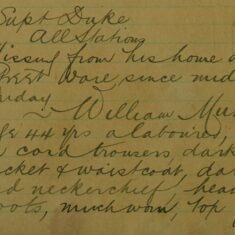 Supt Duke
All Stations
Missing from his home a
Street Ware since mid
Friday
William Mu
44 yrs a laboured,
cord trousers dark
cket & waistcoat, da
d neckerchief, heav
oots, much worn, top